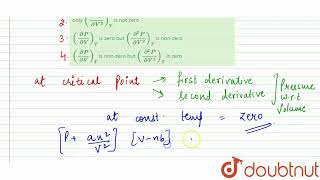 2. only (∂²P/∂V²)_T is not zero
3. (∂P/∂V)_T is zero but (∂²P/∂V²)_T is non-zero
4. (∂P/∂V)_T is non-zero but (∂²P/∂V²)_T is zero
at critical Point → first derivative
→ second derivative
Pressure
w.r.t
Volume
at const. temp = zero
[P + an²/V²] [V-nb]
doubtnut